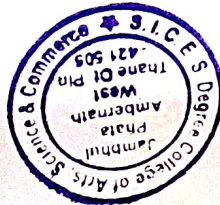 S.I.C.E S Degree College of Arts, Science & Commerce ★
Jambhul
Phata
Ambernath
West
Thane Dt Pin
421 505